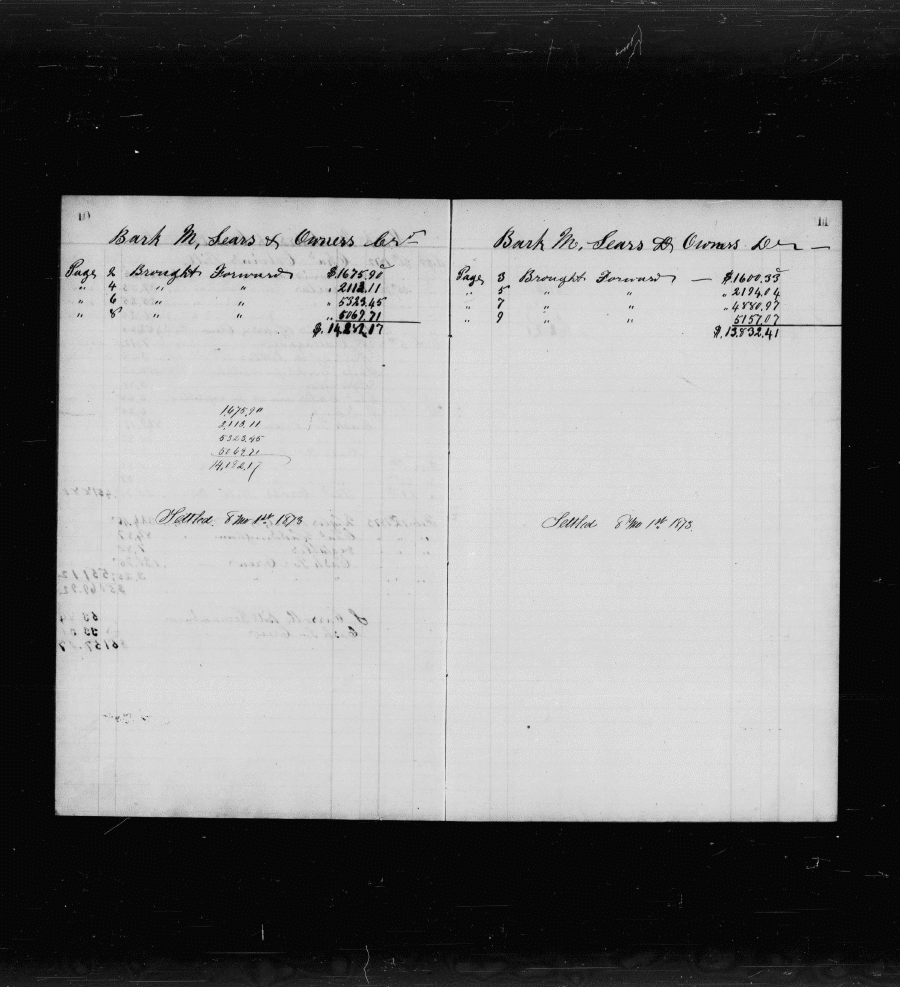 10
Bark M, Sears & Owners Cr
Page 2 Brought Forward $1675.90
" 4 " " " 2113.11
" 6 " " " 5323.45
" 8 " " " 5069.71
$ 14,182.17
1,675.90
2,113.11
5323.45
5069.71
14,182.17
Settled. 8 Mo 1st, 1873
11
Bark M, Sears & Owners Dr
Page 3 Brought Forward — $1600.33
" 5 " " " 2194.04
" 7 " " " 4880.97
" 9 " " 5157.07
$ 13,832.41
Settled 8 Mo 1st 1873.